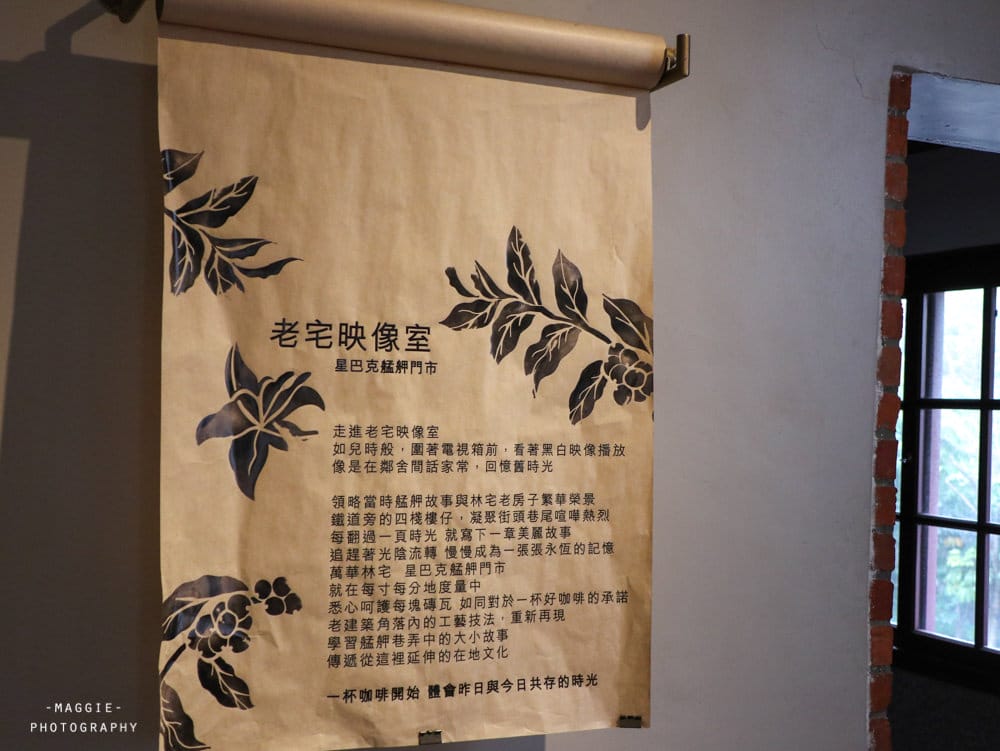 老宅映像室
星巴克艋舺門市
走進老宅映像室
如兒時般，圍著電視箱前，看著黑白映像播放
像是在鄰舍間話家常，回憶舊時光
領略當時艋舺故事與林宅老房子繁華榮景
鐵道旁的四棧樓仔，凝聚街頭巷尾喧嘩熱烈
每翻過一頁時光 就寫下一章美麗故事
追趕著光陰流轉 慢慢成為一張張永恆的記憶
萬華林宅 星巴克艋舺門市
就在每寸每分地度量中
悉心呵護每塊磚瓦 如同對於一杯好咖啡的承諾
老建築角落內的工藝技法，重新再現
學習艋舺巷弄中的大小故事
傳遞從這裡延伸的在地文化
一杯咖啡開始 體會昨日與今日共存的時光
-MAGGIE-
PHOTOGRAPHY